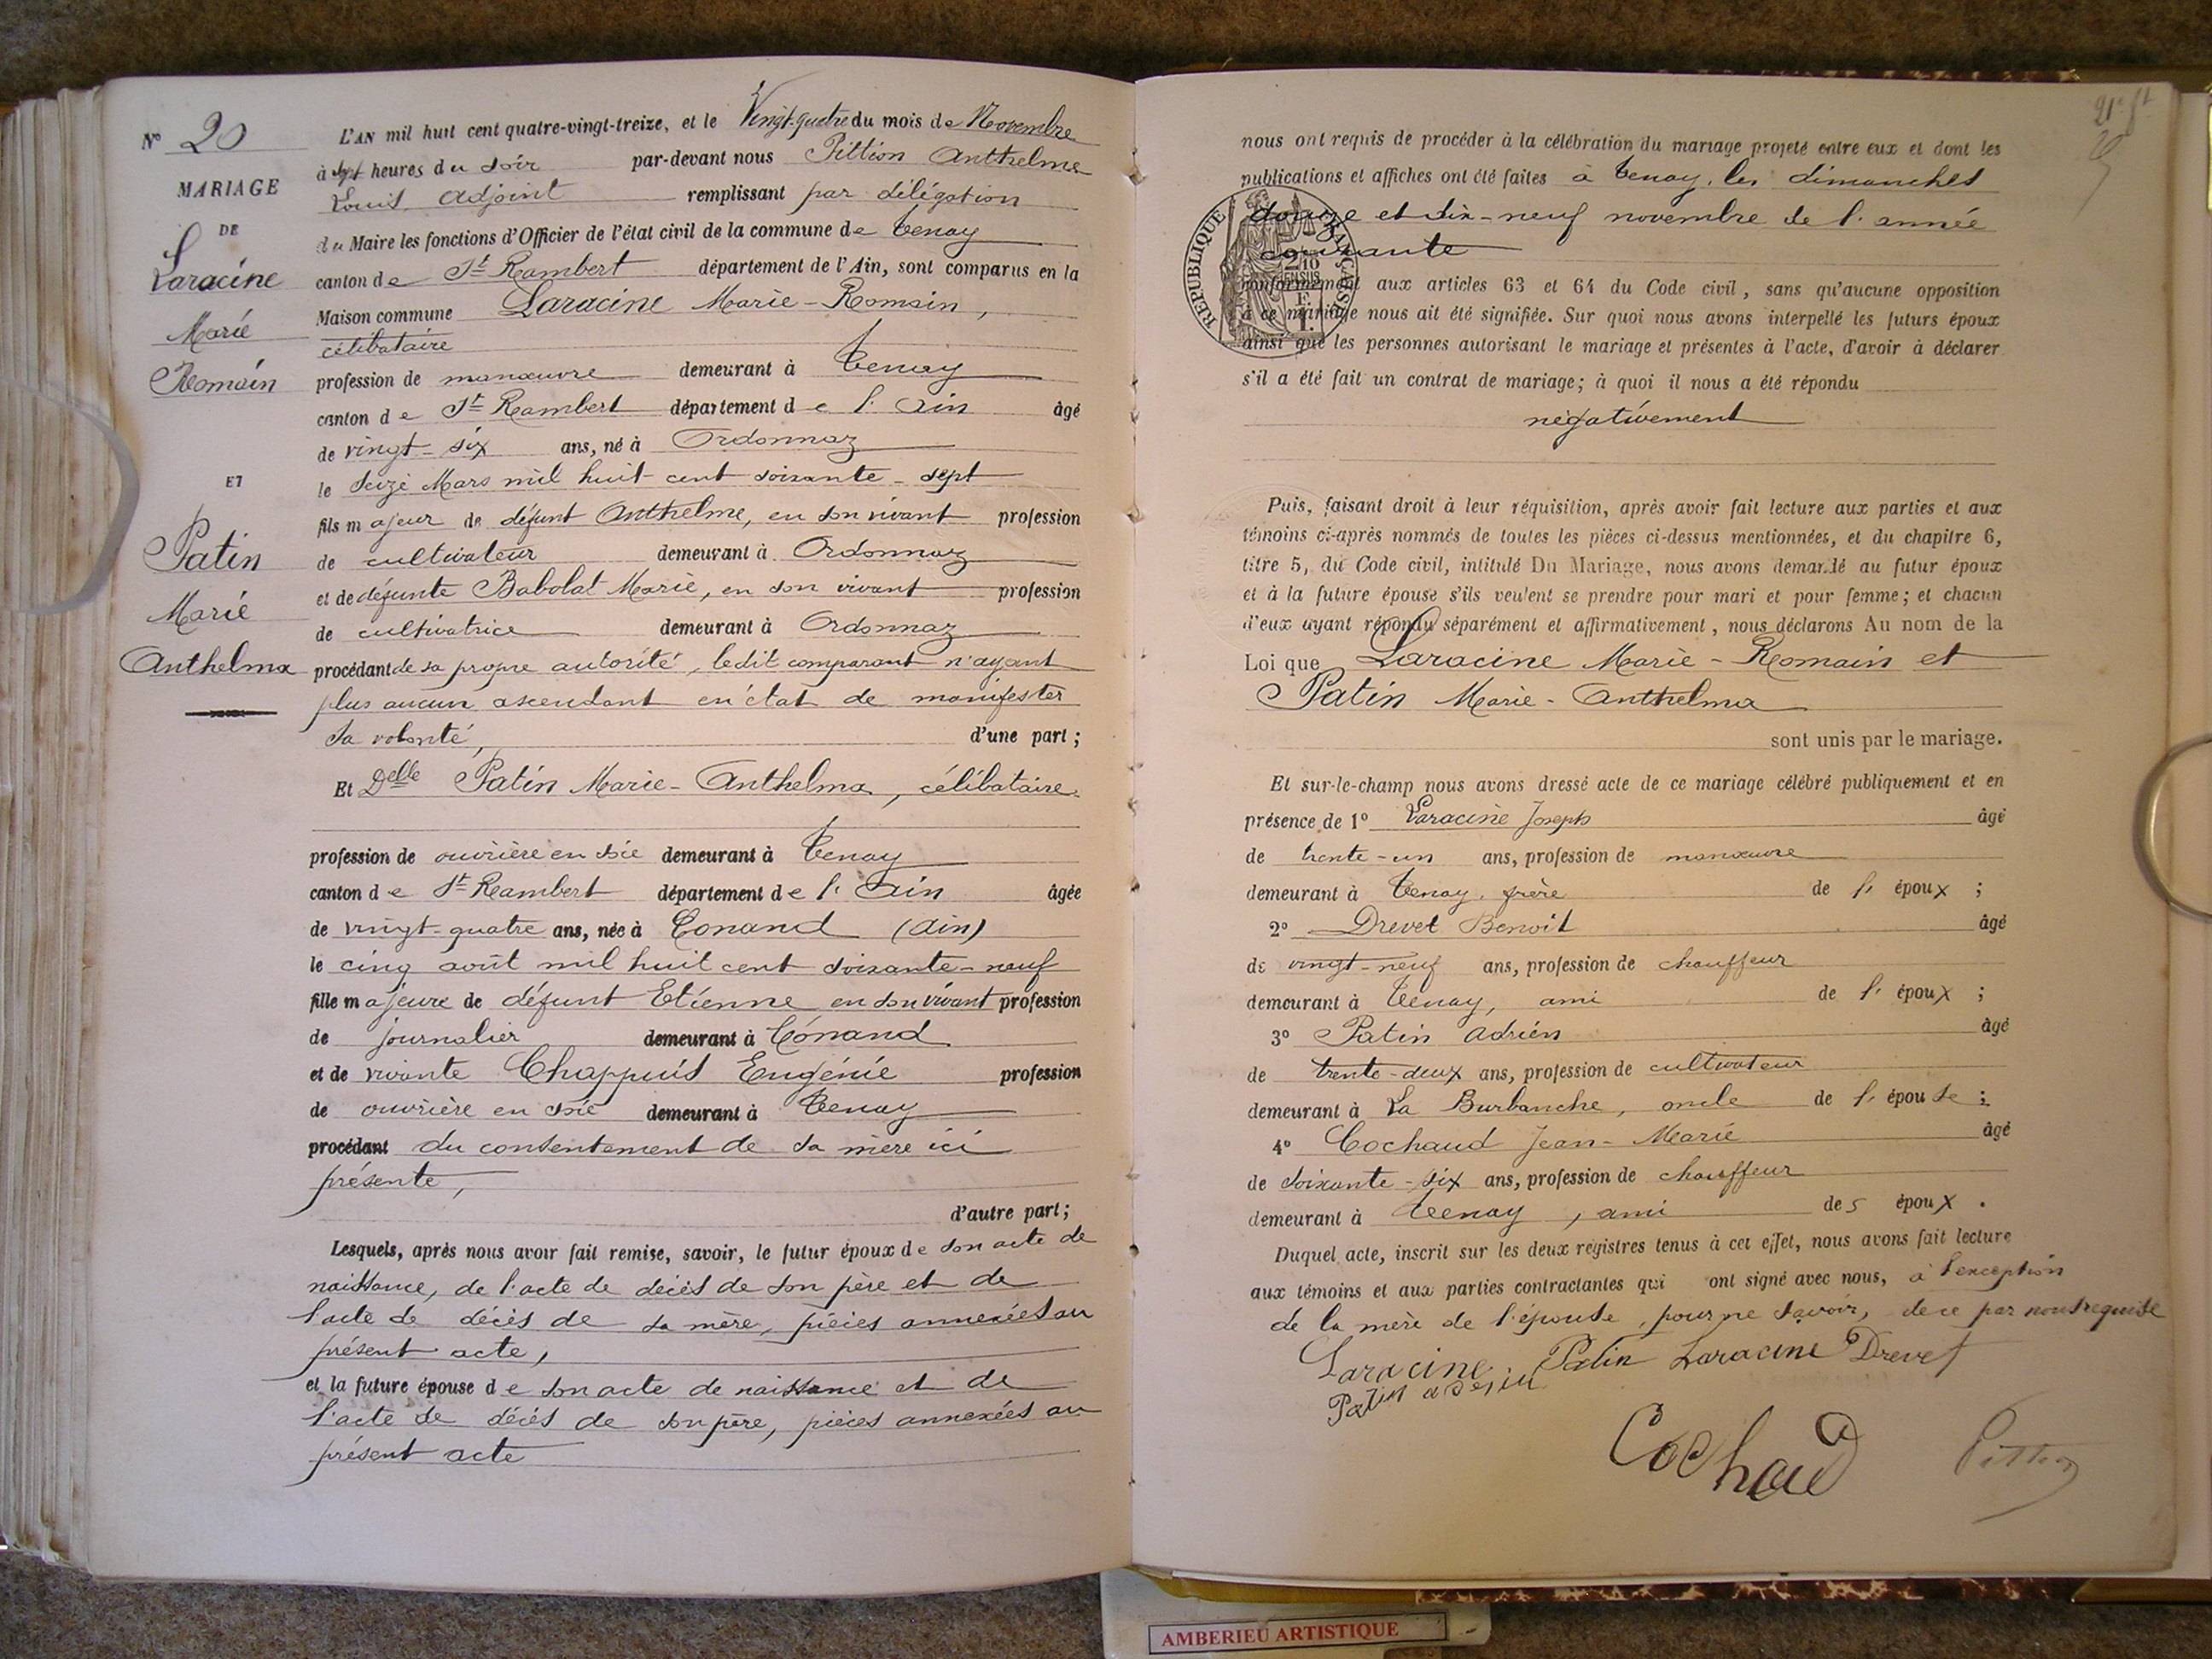 N° 20
MARIAGE
DE
Laracine
Marie
Romain
ET
Patin
Marie
Anthelma
L'AN mil huit cent quatre-vingt-treize, et le Vingt-quatre du mois de Novembre
à sept heures du soir par-devant nous Pittion Anthelme
Louis, Adjoint remplissant par délégation
du Maire les fonctions d'Officier de l'état civil de la commune de Tenay
canton de St Rambert département de l'Ain, sont comparus en la
Maison commune Laracine Marie-Romain,
célibataire
profession de manœuvre demeurant à Tenay
canton de St Rambert département de l'Ain âgé
de vingt-six ans, né à Ordonnaz
le seize Mars mil huit cent soixante-sept
fils majeur de défunt Anthelme, en son vivant profession
de cultivateur demeurant à Ordonnaz
et de défunte Babolat Marie, en son vivant profession
de cultivatrice demeurant à Ordonnaz
procédant de sa propre autorité, ledit comparant n'ayant
plus aucun ascendant en état de manifester
sa volonté, d'une part;
Et Delle Patin Marie-Anthelma, célibataire
profession de ouvrière en soie demeurant à Tenay
canton de St Rambert département de l'Ain âgée
de vingt-quatre ans, née à Conand (Ain)
le cinq août mil huit cent soixante-neuf
fille majeure de défunt Etienne en son vivant profession
de journalier demeurant à Conand
et de vivante Chappuis Eugénie profession
de ouvrière en soie demeurant à Tenay
procédant du consentement de sa mère ici
présente,
d'autre part;
Lesquels, après nous avoir fait remise, savoir, le futur époux de son acte de
naissance, de l'acte de décès de son père et de
l'acte de décès de sa mère, pièces annexées au
présent acte,
et la future épouse de son acte de naissance et de
l'acte de décès de son père, pièces annexées au
présent acte
nous ont requis de procéder à la célébration du mariage projeté entre eux et dont les
publications et affiches ont été faites à Tenay, les dimanches
douze et dix-neuf novembre de l'année
courante
REPUBLIQUE FRANÇAISE
2/10 EN SUS
1 F.
conformément aux articles 63 et 64 du Code civil, sans qu'aucune opposition
à ce mariage nous ait été signifiée. Sur quoi nous avons interpellé les futurs époux
ainsi que les personnes autorisant le mariage et présentes à l'acte, d'avoir à déclarer
s'il a été fait un contrat de mariage; à quoi il nous a été répondu
négativement
Puis, faisant droit à leur réquisition, après avoir fait lecture aux parties et aux
témoins ci-après nommés de toutes les pièces ci-dessus mentionnées, et du chapitre 6,
titre 5, du Code civil, intitulé Du Mariage, nous avons demandé au futur époux
et à la future épouse s'ils veulent se prendre pour mari et pour femme; et chacun
d'eux ayant répondu séparément et affirmativement, nous déclarons Au nom de la
Loi que Laracine Marie-Romain et
Patin Marie-Anthelma
sont unis par le mariage.
Et sur-le-champ nous avons dressé acte de ce mariage célébré publiquement et en
présence de 1° Laracine Joseph âgé
de trente-un ans, profession de manœuvre
demeurant à Tenay, frère de l'époux;
2° Drevet Benoît âgé
de vingt-neuf ans, profession de chauffeur
demeurant à Tenay, ami de l'époux;
3° Patin Adrien âgé
de trente-deux ans, profession de cultivateur
demeurant à La Burbanche, oncle de l'épouse;
4° Cochaud Jean-Marie âgé
de soixante-six ans, profession de chauffeur
demeurant à Tenay, ami des époux.
Duquel acte, inscrit sur les deux registres tenus à cet effet, nous avons fait lecture
aux témoins et aux parties contractantes qui ont signé avec nous, à l'exception
de la mère de l'épouse, pour ne savoir, de ce par nous requise
Laracine. Patin Laracine Drevet
Patin adrien
Cochaud Pittion
AMBERIEU ARTISTIQUE